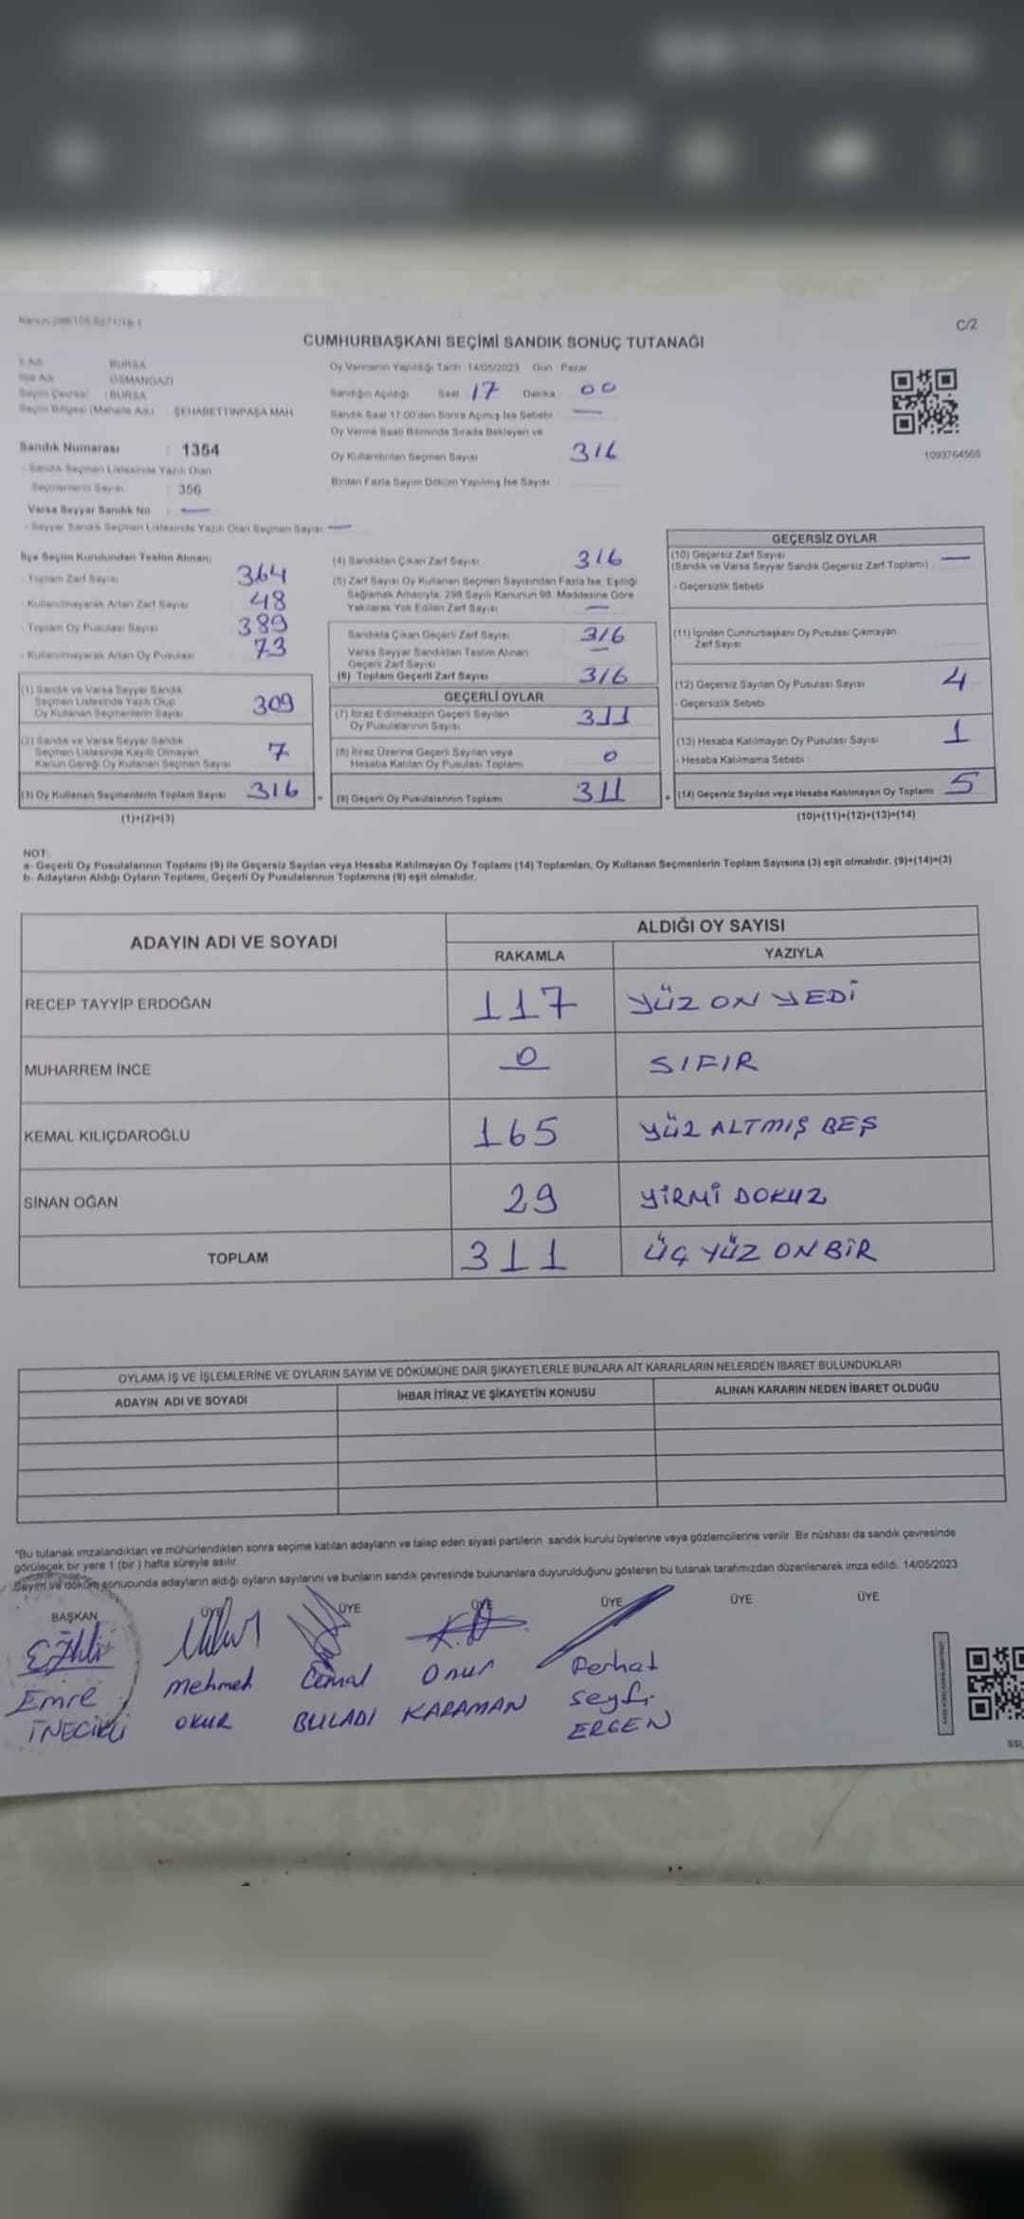 C/2
CUMHURBAŞKANI SEÇİMİ SANDIK SONUÇ TUTANAĞI
İl Adı BURSA
İlçe Adı OSMANGAZİ
Seçim Çevresi : BURSA
Seçim Bölgesi (Mahalle Adı) : ŞEHABETTİNPAŞA MAH.
Sandık Numarası : 1354
- Sandık Seçmen Listesinde Yazılı Olan
Seçmenlerin Sayısı : 356
Varsa Seyyar Sandık No : —
- Seyyar Sandık Seçmen Listesinde Yazılı Olan Seçmen Sayısı —
Oy Vermenin Yapıldığı Tarih 14/05/2023 Gün Pazar
Sandığın Açıldığı Saat 17 Dakika 00
Sandık Saat 17:00'den Sonra Açılmış İse Sebebi —
Oy Verme Saati Bitiminde Sırada Bekleyen ve
Oy Kullandırılan Seçmen Sayısı 316
Birden Fazla Sayım Döküm Yapılmış İse Sayısı
1093764565
İlçe Seçim Kurulundan Teslim Alınan;
- Toplam Zarf Sayısı 364
- Kullanılmayarak Artan Zarf Sayısı 48
- Toplam Oy Pusulası Sayısı 389
- Kullanılmayarak Artan Oy Pusulası 73
(1) Sandık ve Varsa Seyyar Sandık
Seçmen Listesinde Yazılı Olup
Oy Kullanan Seçmenlerin Sayısı 309
(2) Sandık ve Varsa Seyyar Sandık
Seçmen Listesinde Kayıtlı Olmayan
Kanun Gereği Oy Kullanan Seçmen Sayısı 7
(3) Oy Kullanan Seçmenlerin Toplam Sayısı 316
(1)+(2)=(3)
(4) Sandıktan Çıkan Zarf Sayısı 316
(5) Zarf Sayısı Oy Kullanan Seçmen Sayısından Fazla İse, Eşitliği
Sağlamak Amacıyla; 298 Sayılı Kanunun 98. Maddesine Göre
Yakılarak Yok Edilen Zarf Sayısı —
Sandıkta Çıkan Geçerli Zarf Sayısı 316
Varsa Seyyar Sandıktan Teslim Alınan
Geçerli Zarf Sayısı —
(6) Toplam Geçerli Zarf Sayısı 316
GEÇERLİ OYLAR
(7) İtiraz Edilmeksizin Geçerli Sayılan
Oy Pusulalarının Sayısı 311
(8) İtiraz Üzerine Geçerli Sayılan veya
Hesaba Katılan Oy Pusulası Toplamı 0
(9) Geçerli Oy Pusulalarının Toplamı 311
GEÇERSİZ OYLAR
(10) Geçersiz Zarf Sayısı —
(Sandık ve Varsa Seyyar Sandık Geçersiz Zarf Toplamı)
- Geçersizlik Sebebi
(11) İçinden Cumhurbaşkanı Oy Pusulası Çıkmayan
Zarf Sayısı
(12) Geçersiz Sayılan Oy Pusulası Sayısı 4
- Geçersizlik Sebebi
(13) Hesaba Katılmayan Oy Pusulası Sayısı 1
- Hesaba Katılmama Sebebi
(14) Geçersiz Sayılan veya Hesaba Katılmayan Oy Toplamı 5
(10)+(11)+(12)+(13)=(14)
NOT:
a- Geçerli Oy Pusulalarının Toplamı (9) ile Geçersiz Sayılan veya Hesaba Katılmayan Oy Toplamı (14) Toplamları, Oy Kullanan Seçmenlerin Toplam Sayısına (3) eşit olmalıdır. (9)+(14)=(3)
b- Adayların Aldığı Oyların Toplamı, Geçerli Oy Pusulalarının Toplamına (9) eşit olmalıdır.
ADAYIN ADI VE SOYADI ALDIĞI OY SAYISI
RAKAMLA YAZIYLA
RECEP TAYYİP ERDOĞAN 117 YÜZ ON YEDİ
MUHARREM İNCE 0 SIFIR
KEMAL KILIÇDAROĞLU 165 YÜZ ALTMIŞ BEŞ
SİNAN OĞAN 29 YİRMİ DOKUZ
TOPLAM 311 ÜÇ YÜZ ON BİR
OYLAMA İŞ VE İŞLEMLERİNE VE OYLARIN SAYIM VE DÖKÜMÜNE DAİR ŞİKAYETLERLE BUNLARA AİT KARARLARIN NELERDEN İBARET BULUNDUKLARI
ADAYIN ADI VE SOYADI İHBAR İTİRAZ VE ŞİKAYETİN KONUSU ALINAN KARARIN NEDEN İBARET OLDUĞU
*Bu tutanak imzalandıktan ve mühürlendikten sonra seçime katılan adayların ve talep eden siyasi partilerin sandık kurulu üyelerine veya gözlemcilerine verilir. Bir nüshası da sandık çevresinde
görülecek bir yere 1 (bir) hafta süreyle asılır.
Sayım ve döküm sonucunda adayların aldığı oyların sayılarını ve bunların sandık çevresinde bulunanlara duyurulduğunu gösteren bu tutanak tarafımızdan düzenlenerek imza edildi. 14/05/2023
BAŞKAN ÜYE ÜYE ÜYE ÜYE ÜYE ÜYE
Emre İNECİKLİ
Mehmet OKUR
Cemal BULADI
Onur KARAMAN
Ferhat Seyfi ERGEN